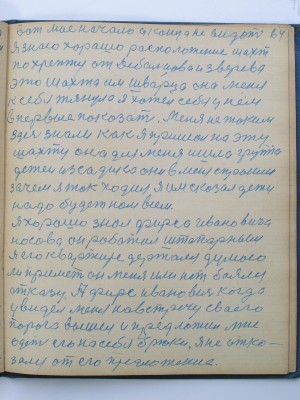 вот мое начало а концу не видать 64
Я знаю хорошо расположение шахт
по хрепту от Дебальцова и зверева
это шахта им Шварца она меня
к себе тянула я хотел себя в нем
впервые показат. Меня не таким
здесь знали как я пришол на эту
шахту она для меня шила група
детей из садика они в меня спросили
зачем я так ходил я им сказал дети
надо будет на всем.
Я хорошо знал фирса ивановича
носова он работал штапарными
я его квартире держал думал
ли примет он меня или нет боялся
отказу. А фирс иванович когда
увидел меня на встречу своего
порога вышел и предложил мне
одеть его на себя брюки. Я не отка-
зался от его предложение.